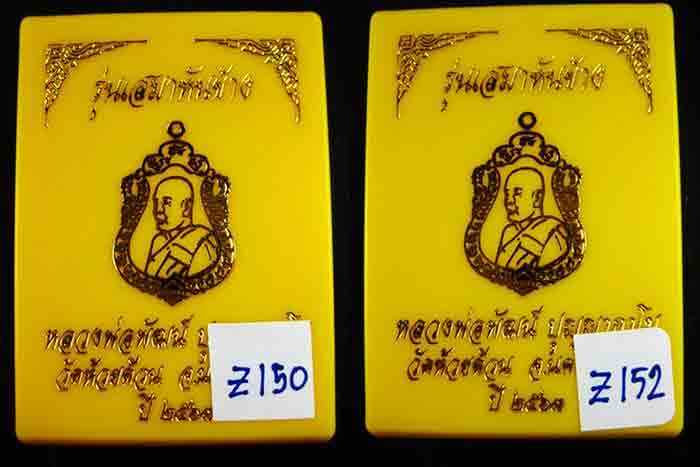 รุ่นเสมาหันข้าง
หลวงพ่อพัฒน์
วัดห้วยด้วน
ปี ๒๕๖๓
Z150
รุ่นเสมาหันข้าง
หลวงพ่อพัฒน์ ปุญฺญกาโม
วัดห้วยด้วน
ปี ๒๕๖๓
Z152